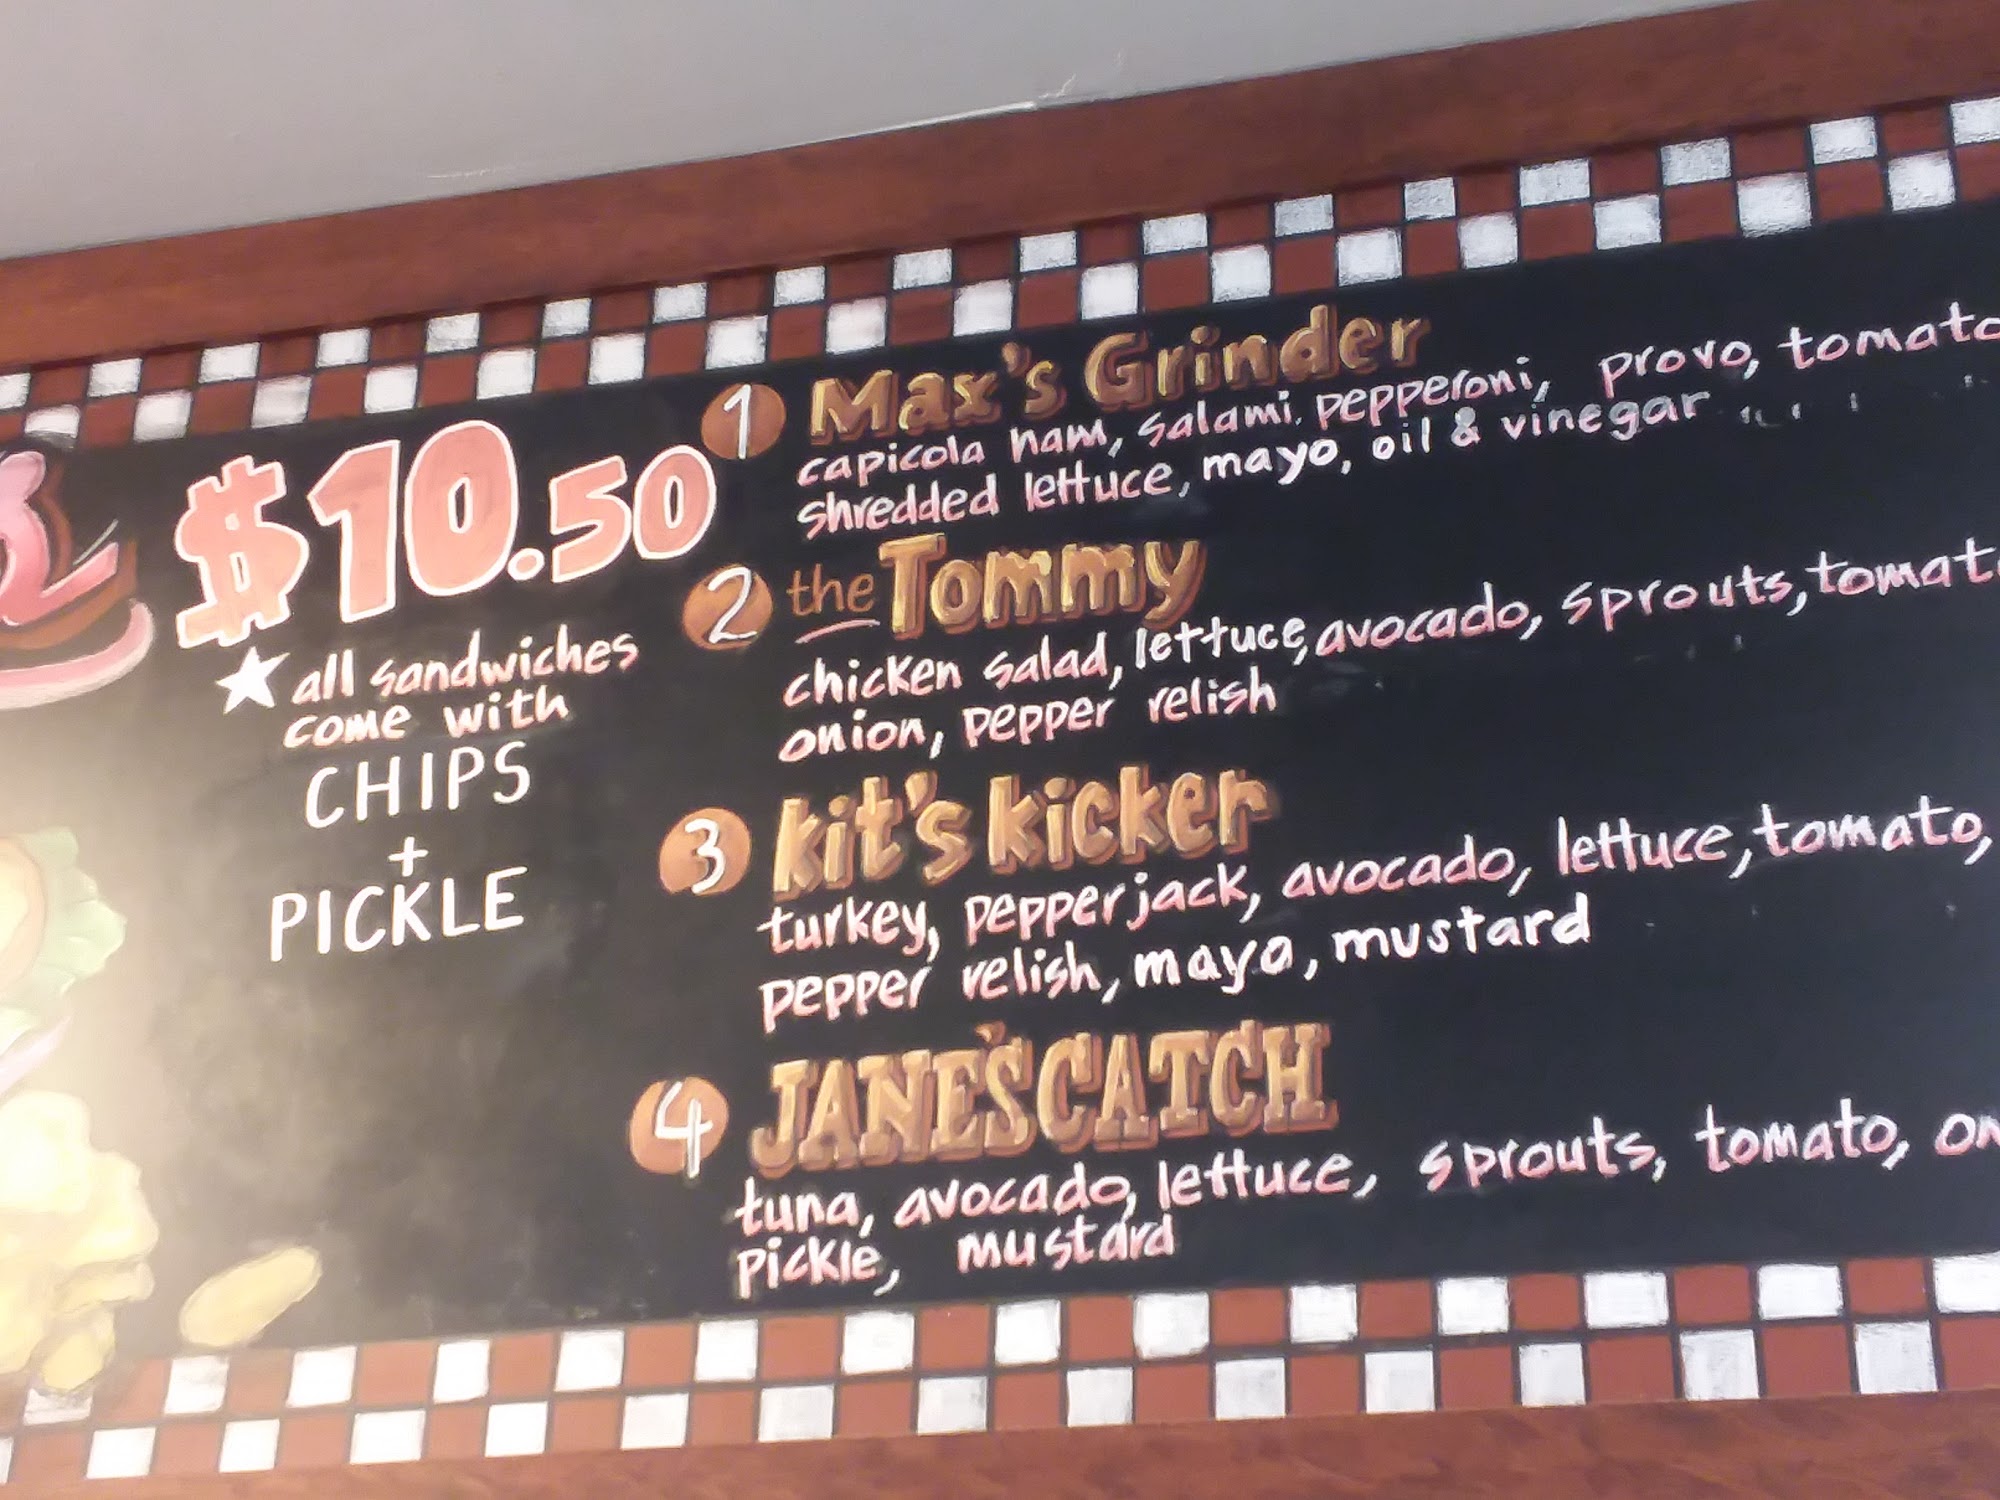 $10.50
all sandwiches
come with
CHIPS
+
PICKLE
1 Max's Grinder
capicola ham, salami, pepperoni, provo, tomato
shredded lettuce, mayo, oil & vinegar
2 the Tommy
chicken salad, lettuce, avocado, sprouts, tomato
onion, pepper relish
3 kit's kicker
turkey, pepperjack, avocado, lettuce, tomato,
pepper relish, mayo, mustard
4 JANE'S CATCH
tuna, avocado, lettuce, sprouts, tomato,
pickle, mustard